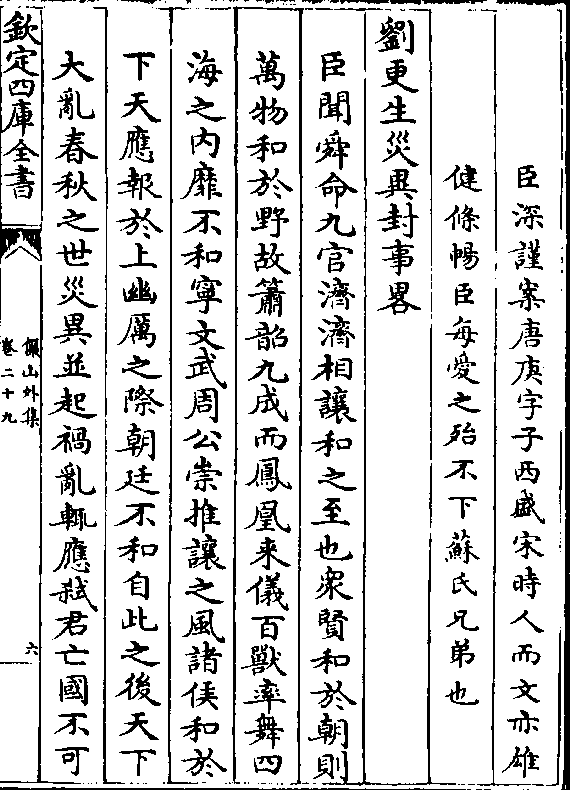 臣深謹案唐庚字子西盛宋時人而文亦雄
健條暢臣每愛之殆不下蘇氏兄弟也
劉更生災異封事畧
臣聞舜命九官濟濟相讓和之至也衆賢和於朝則
萬物和於野故簫韶九成而鳳凰来儀百獸率舞四
海之内靡不和寜文武周公崇推讓之風諸侯和於
下天應報於上幽厲之際朝廷不和自此之後天下
大亂春秋之世災異並起禍亂輒應弑君亡國不可
欽定四庫全書
儼山外集
卷二十九
六